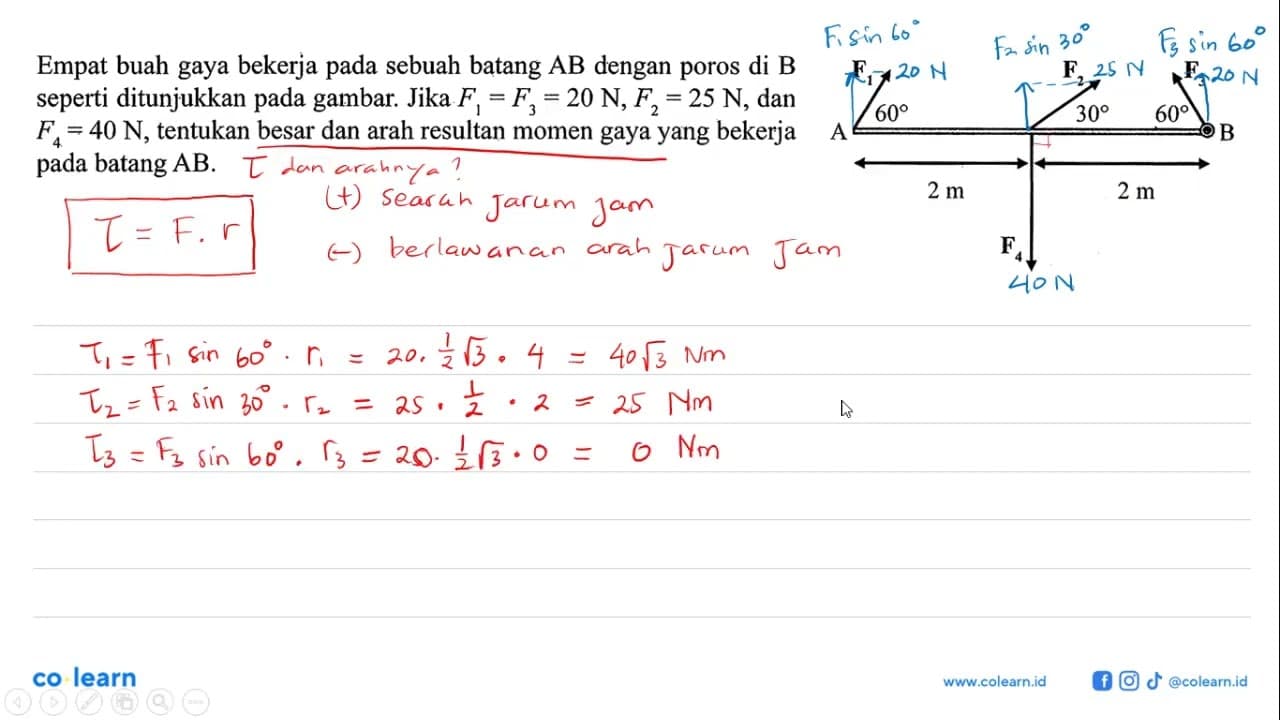 Empat buah gaya bekerja pada sebuah batang AB dengan poros di B
seperti ditunjukkan pada gambar. Jika F₁ = F₃ = 20 N, F₂ = 25 N, dan
F₄ = 40 N, tentukan besar dan arah resultan momen gaya yang bekerja
pada batang AB.
τ dan arahnya?
(+) searah jarum jam
(-) berlawanan arah jarum jam
τ = F. r
F₁ sin 60°
F₂ sin 30°
F₃ sin 60°
F₁ 20 N
F₂ 25 N
F₃ 20 N
60°
30°
60°
A
B
2 m
2 m
F₄
40 N
τ₁ = F₁ sin 60° . r₁ = 20. ½√3 . 4 = 40√3 Nm
τ₂ = F₂ sin 30° . r₂ = 25 . ½ . 2 = 25 Nm
τ₃ = F₃ sin 60° . r₃ = 20. ½√3 . 0 = 0 Nm
co learn
www.colearn.id
@colearn.id